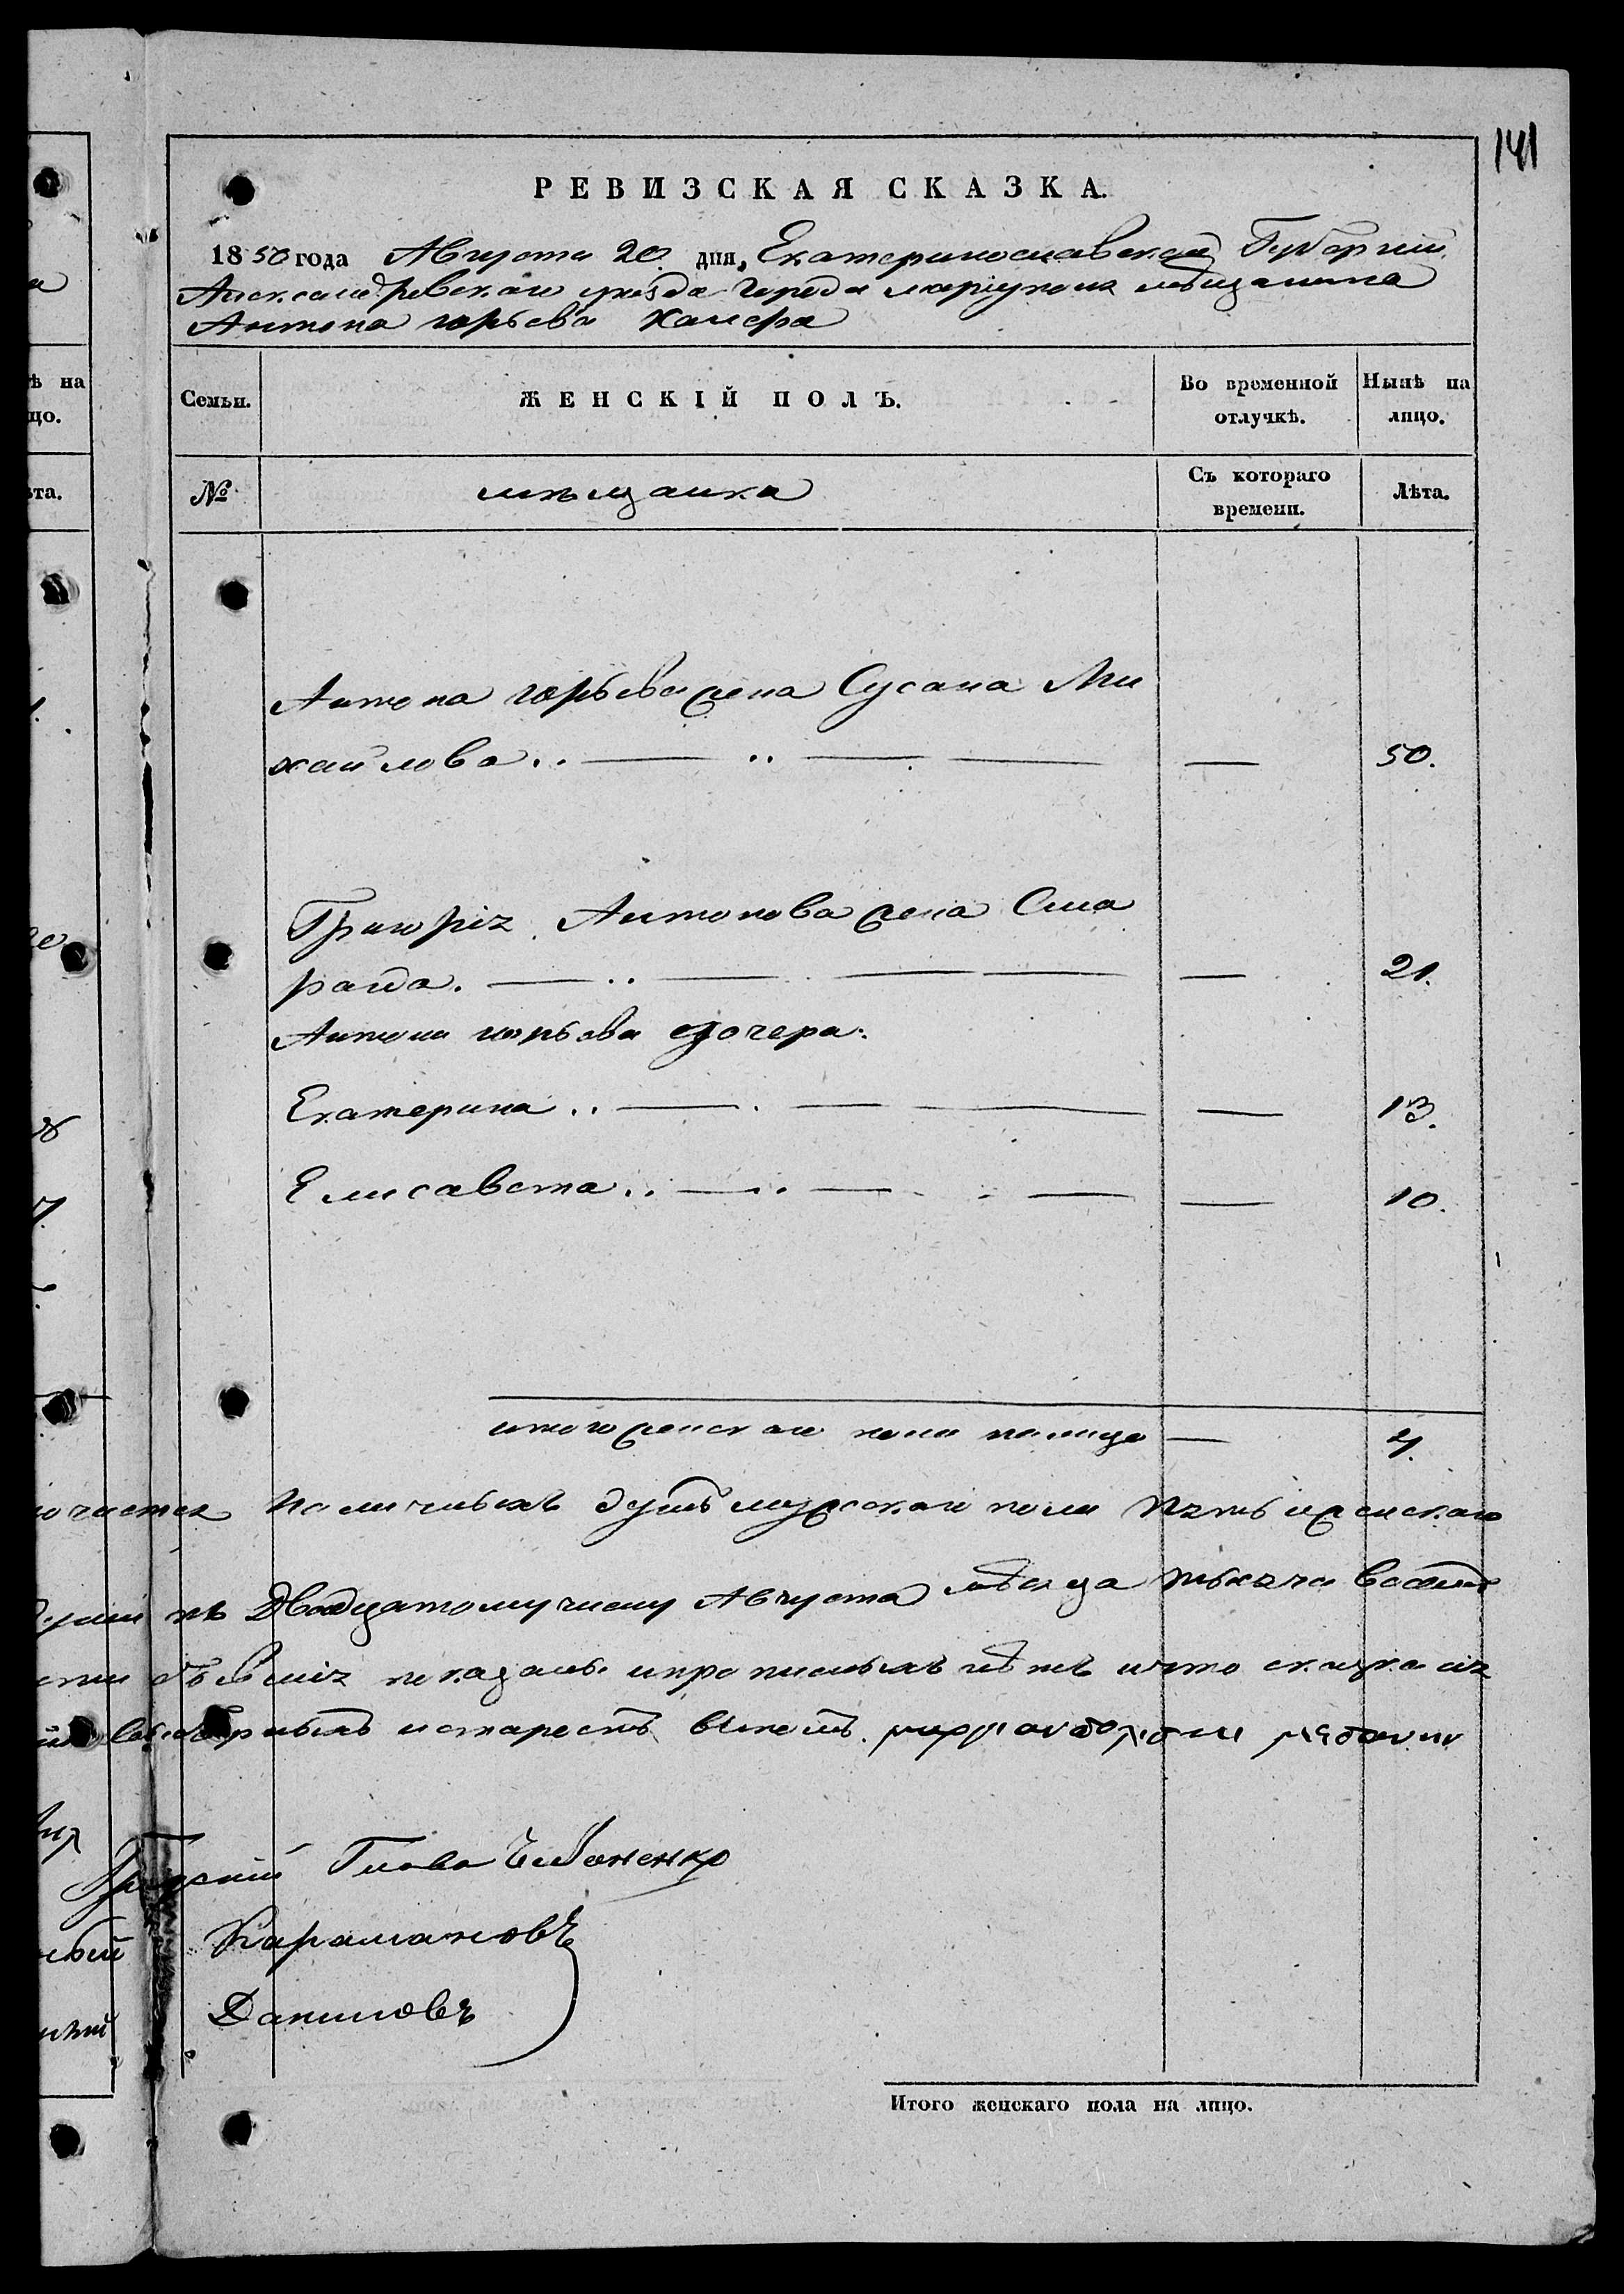 141
РЕВИЗСКАЯ СКАЗКА.
1850 года Августа 20 дня, Екатеринославской Губерніи
Александровскаго уѣзда города Маріуполя мѣщанина
Антона Юрьева Хамера
Семьи. ЖЕНСКІЙ ПОЛЪ. Во временной отлучкѣ. Нынѣ на лицо.
№ мѣщанка Съ котораго времени. Лѣта.
Антона Юрьева жена Сусана Ми
хайлова .. — .. — — — 50.
Григорія Антонова жена Сма
рагда. — .. — — — — 21.
Антона Юрьева дочера:
Екатерина .. — . — — — 13.
Елисавета .. — .. — — — 10.
итого женскаго пола налицо — 4.
наличныхъ душъ мужскаго пола пять и женскаго
къ двадцатому числу Августа мѣсяца тысяча восемь
показаны и прописныхъ нѣтъ и что сказка сія
и старостъ
Градскій Глава Чебаненко
Карамановъ
Даниловъ
Итого женскаго пола на лицо.
ѣ на
цо.
ѣта.